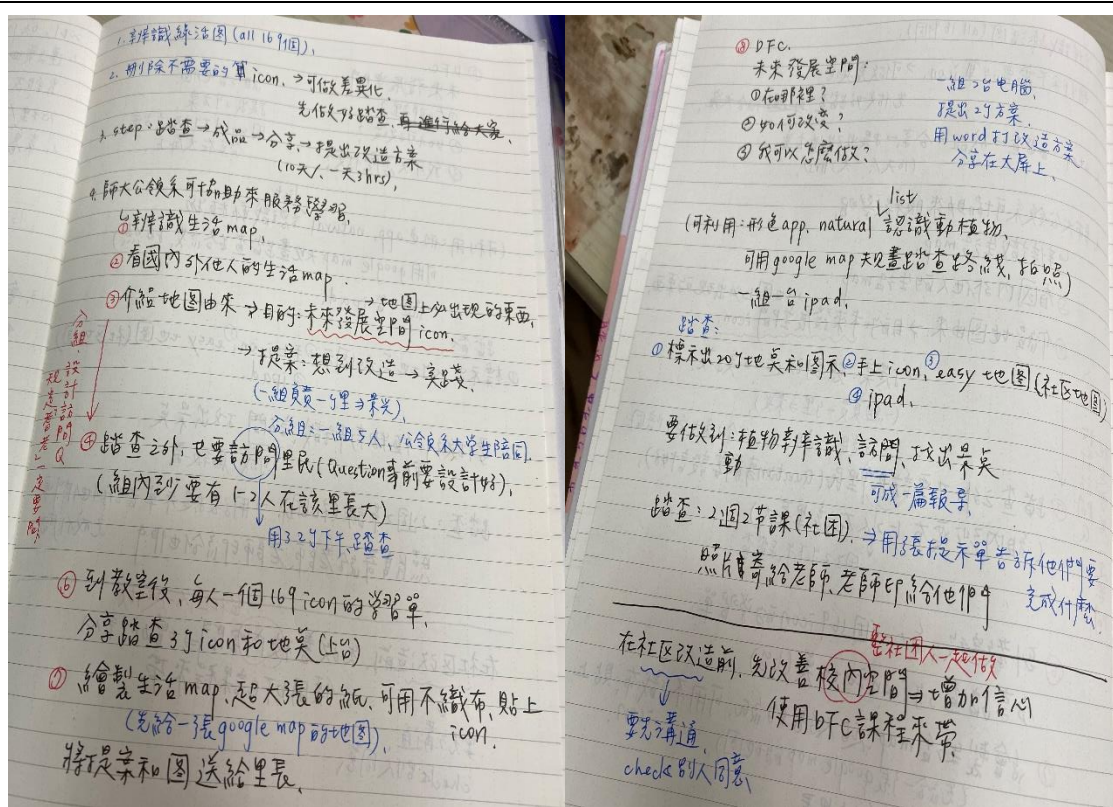 1. 辨識綠活图(all 169個),
2. 刪除不需要的算icon, → 可做差異化,
先做好踏查, 再進行給大家,
3. step:踏查→成品→分享→提出改造方案
(10天/一天3hrs),
4. 師大公領系可協助來服務學習,
↳①辨識生活map,
②看國內外他人的生活map.
③介紹地圖由來→目的:未來發展空間icon,
→地图上必出現的東西,
→提案:想到改造→实踐,
(一組負責一个里→景美),
分組:一組5人,公領系大学生陪同,
④踏查之外,也要訪問里民(Question事前要設計好),
(組內到少要有1-2人在該里長大)
用3.2个下午,踏查
分組,設計訪問Q
一定要
⑥到教室後,每人一個169 icon的学習單,
分享踏查3个icon和地點(上台)
⑦繪製生活map,超大張的紙,可用不織布,貼上icon,
(先給一張google map的地图),
將提案和图送給里長,
⑧DFC.
未來發展空間:
①在哪裡?
②如何改变?
③我可以怎麼做?
一組2台电腦,
提出2个方案,
用word打改造方案
分享在大屏上,
list
(可利用:形色app, natural 認識動植物,
可用google map去規畫踏查路綫,拍照)
一組一台ipad,
踏查:
①標示出20个地點和图示,②手上icon,③easy地图(社区地图)
④ipad,
要做到:植物辨識、訪問、找出景點
動
可成一篇報導,
踏查:2週2節課(社团),⇒用張提示單告訴他們要
完成什麼
照片寄給老師,老師印給他們
整社团人一起做
在社区改造前,先改善校內空間⇒增加信心
使用DFC課程來帶,
要先溝通,
check別人同意,